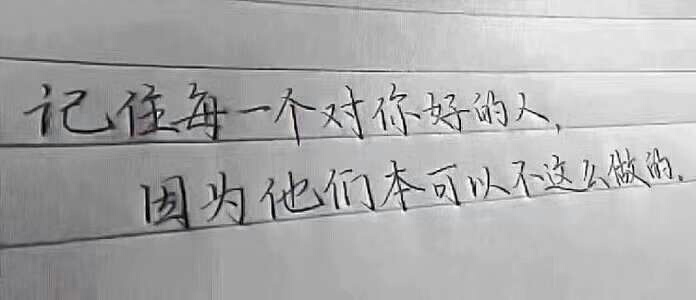 记住每一个对你好的人,
因为他们本可以不这么做的.